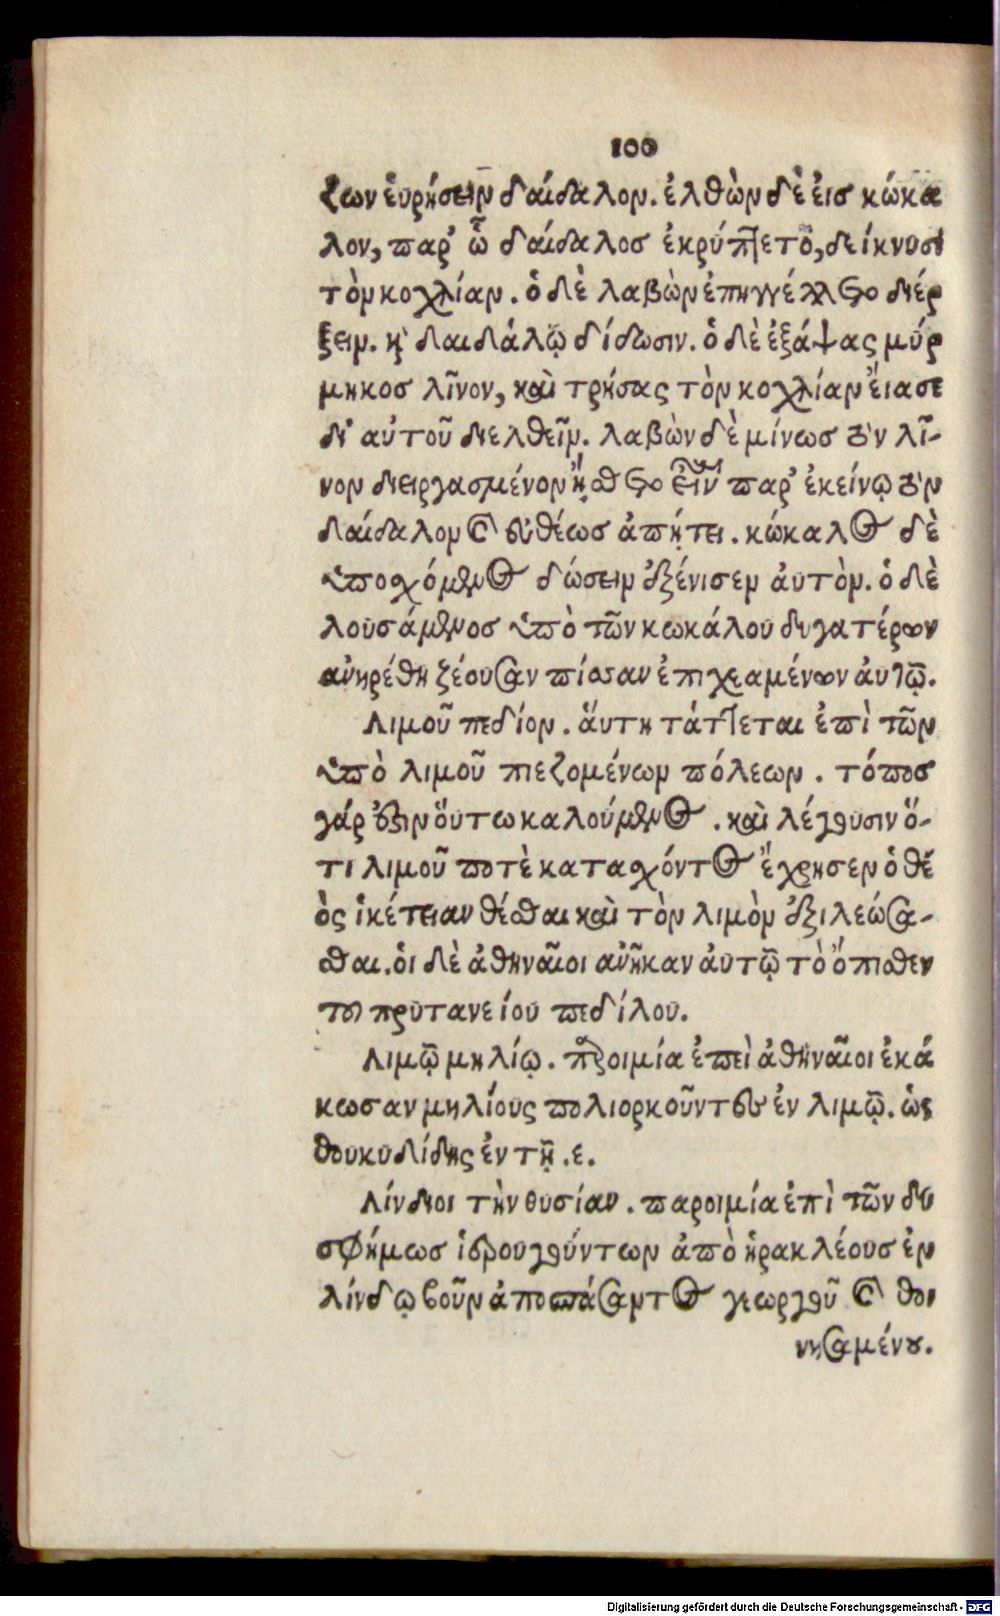 100
ζων εὑρήσειν δαίδαλον. ἐλθὼν δὲ ἐισ κώκα
λον, παρ' ᾧ δαίδαλοσ ἐκρύπτετο, δείκνυσι
τὸν κοχλίαν. ὁ δὲ λαβὼν ἐπηγγέλλετο διέρ
ξειν. κỳ δαιδάλῳ δίδωσιν. ὁ δὲ ἐξάψας μύρ
μηκοσ λῖνον, καὶ τρήσας τὸν κοχλίαν ἔιασε
δι' αὐτοῦ διελθεῖν. λαβὼν δὲ μίνωσ τὸν λῖ-
νον διειργασμένον ᾔσθετο εἶναι παρ' ἐκείνῳ τὸν
δαίδαλον καὶ εὐθέωσ ἀπῄτει. κώκαλος δὲ
ὑποσχόμενος δώσειν ἐξένισεν ἀυτὸν. ὁ δὲ
λουσάμενοσ ὑπὸ τῶν κωκάλου θυγατέρων
ανῃρέθη ζέουσαν πίσσαν ἐπιχεαμένων ἀυτῷ.
Λιμοῦ πεδίον. ἅυτη τάττεται ἐπὶ τῶν
ὑπὸ λιμοῦ πιεζομένων πόλεων. τόποσ
γάρ ἐστιν ὅυτω καλούμενος. καὶ λέγουσιν ὅ-
τι λιμοῦ ποτὲ κατασχόντος ἔχρησεν ὁ θε
ὸς ἱκέτειαν θέσθαι καὶ τὸν λιμὸν ἐξιλεώσα-
σθαι. ὁι δὲ ἀθηναῖοι ανῆκαν ἀυτῷ τὸ ὄπισθεν
του πρυτανείου πεδίλου.
Λιμῷ μηλίῳ. παροιμία ἐπεὶ ἀθηναῖοι ἐκά
κωσαν μηλίους πολιορκοῦντες ἐν λιμῷ. ὡς
θουκυδίδης ἐν τῇ .ε.
Λίνδιοι τὴν θυσίαν. παροιμία ἐπὶ τῶν δυ
σφήμωσ ἱερουργούντων ἀπὸ ἡρακλέουσ ἐν
λίνδῳ βοῦν ἀποσπάσαντος γεωργοῦ καὶ θοι
νησαμένου.
Digitalisierung gefördert durch die Deutsche Forschungsgemeinschaft - DFG